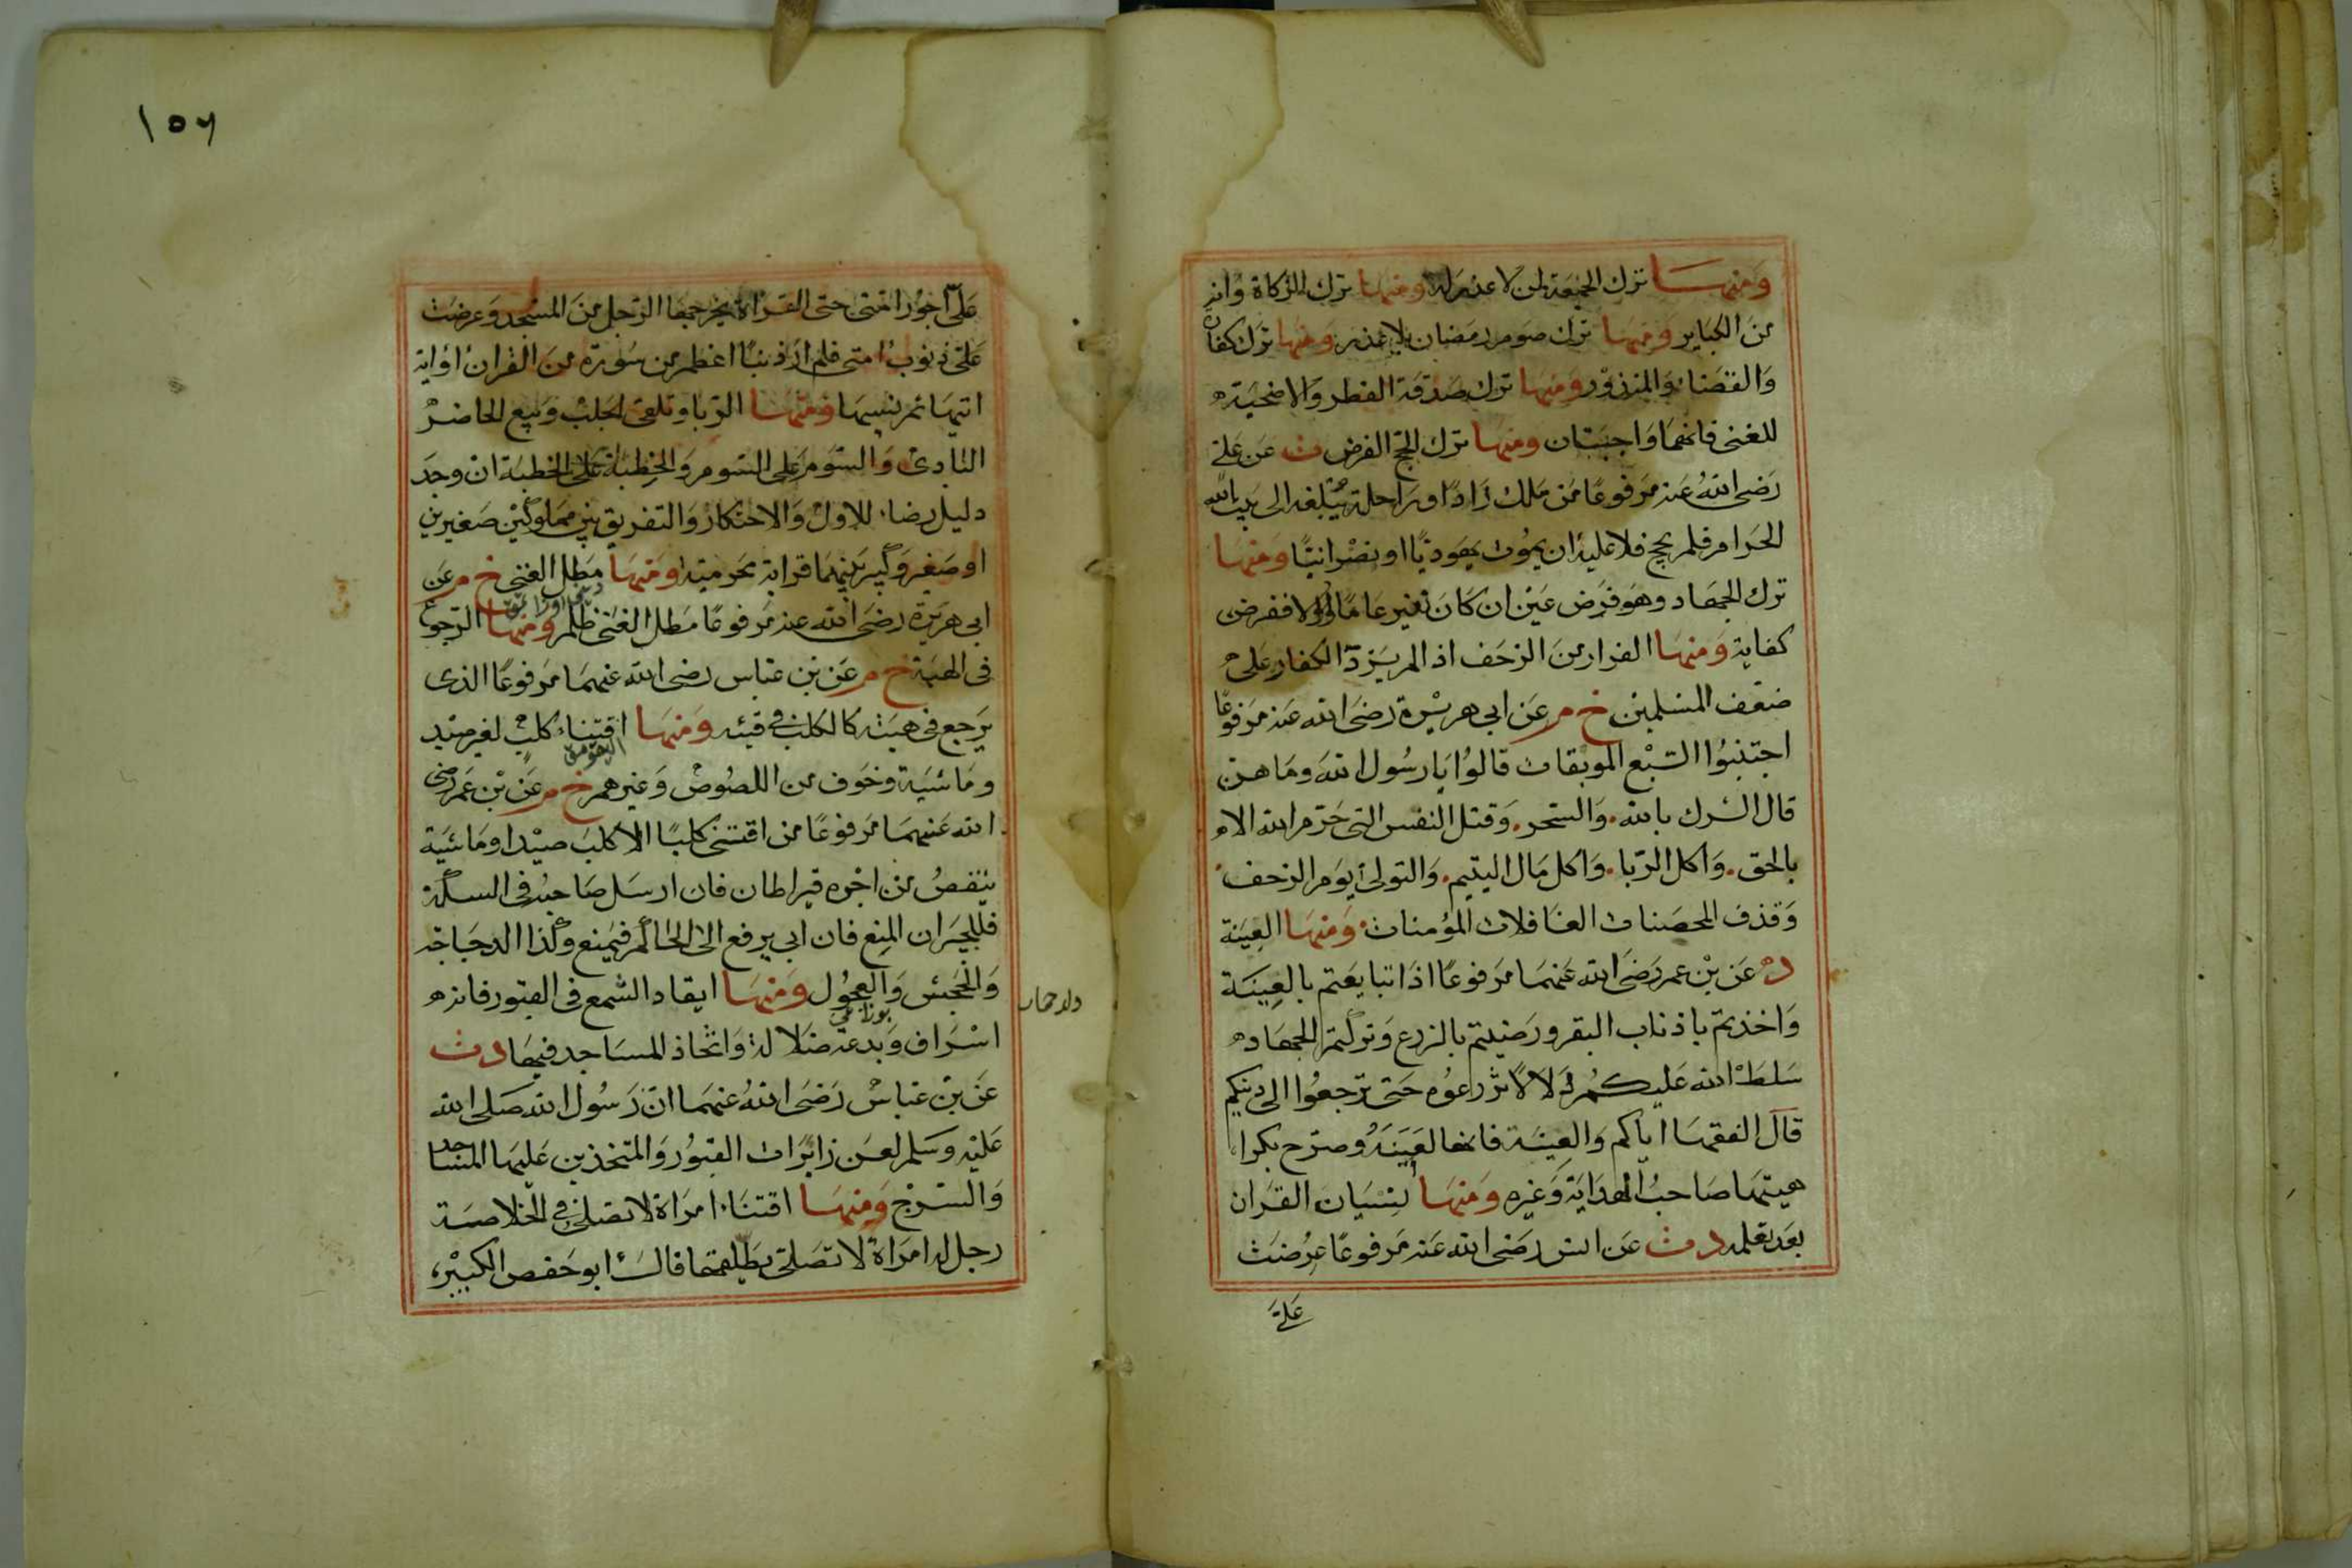 ومنها ترك الجمعة لمن لا عذر له ومنها ترك الزكاة وانه
من الكباير ومنها ترك صوم رمضان بلا عذر ومنها ترك كفارة
والقضاء والمنذور ومنها ترك صدقة الفطر والاضحية
للغنى فانهما واجبتان ومنها ترك الحج الفرض ت عن على
رضى الله عنه مرفوعا من ملك زادا وراحلة يبلغه الى بيت الله
الحرام فلم يحج فلا عليه ان يموت يهوديا او نصرانيا ومنها
ترك الجهاد وهو فرض عين ان كان نفير عاما والا ففرض
كفاية ومنها الفرار من الزحف اذا لم يزد الكفار على
ضعف المسلمين خ م عن ابى هريرة رضى الله عنه مرفوعا
اجتنبوا السبع الموبقات قالوا يا رسول الله وما هن
قال الشرك بالله والسحر وقتل النفس التى حرم الله الا
بالحق واكل الربا واكل مال اليتيم والتولى يوم الزحف
وقذف المحصنات الغافلات المؤمنات ومنها العينة
د عن بن عمر رضى الله عنهما مرفوعا اذا تبايعتم بالعينة
واخذتم باذناب البقر ورضيتم بالزرع وتركتم الجهاد
سلط الله عليكم ذلا لا تزرعوه حتى ترجعوا الى دينكم
قال الفقها اياكم والعينة فانها لعينة وصرح بكرا
هيتها صاحب الهداية وغيره ومنها نسيان القران
بعد تعلمه د ت عن انس رضى الله عنه مرفوعا عرضت
على
١٥٦
على اجور امتى حتى القذاة يخرجها الرجل من المسجد وعرضت
على ذنوب امتى فلم ار ذنبا اعظم من سورة من القران او اية
اتيها ثم نسيها ومنها الربا وتلقى الجلب وبيع الحاضر
البادى والسوم على السوم والخطبة على الخطبة ان وجد
دليل رضاء للاول والاحتكار والتفريق بين مملوكين صغيرين
او صغير وكبير بينهما قرابة محرمية ومنها مطل الغنى خ م عن
ابى هريرة رضى الله عنه مرفوعا مطل الغنى ظلم ومنها الرجوع
فى الهبة خ م عن بن عباس رضى الله عنهما مرفوعا الذى
يرجع فى هبته كالكلب فى قيئه ومنها اقتناء كلب لغير صيد
وماشية وخوف من اللصوص وغيرهم خ م عن بن عمر رضى
الله عنهما مرفوعا من اقتنى كلبا الا كلب صيد او ماشية
ينقص من اجره قيراطان فان ارسل صاحبه فى السكة
فللجيران المنع فان ابى يرفع الى الحاكم فيمنع وكذا الدجاجة
والجحش والعجول ومنها ايقاد الشمع فى القبور فانه
اسراف وبدعة ضلالة واتخاذ المساجد فيها د ت
عن بن عباس رضى الله عنهما ان رسول الله صلى الله
عليه وسلم لعن زائرات القبور والمتخذين عليها المساجد
والسرج ومنها اقتناء امراة لا تصلى فى الخلاصة
رجل له امراة لا تصلى يطلقها قال ابو حفص الكبير